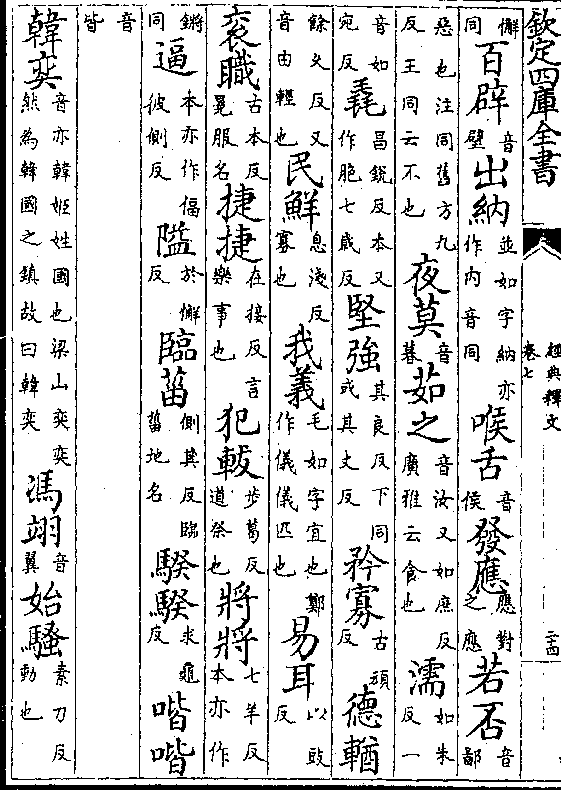 欽定四庫全書 經典釋文 卷七
懈同百辟音璧出納並如字納亦作内音同喉舌音侯發應應對之應若否音鄙
惡也注同舊方九反王同云不也夜莫音暮茹之音汝又如庶反廣雅云食也濡如朱反一
音如宛反毳昌銳反本又作脆七歲反堅強其良反下同或其丈反矜寡古頑反德輶
餘久反又音由輕也民鮮息淺反寡也我義毛如字宜也鄭作儀儀匹也易耳以豉反
袞職古本反冕服名捷捷在接反言樂事也犯軷步葛反道祭也將將七羊反本亦作
鏘同逼本亦作偪彼側反隘於懈反臨菑側其反臨菑地名騤騤求龜反喈喈
音皆
韓奕音亦韓姬姓國也梁山奕奕然為韓國之鎮故曰韓奕馮翊音翼始騷素刀反動也